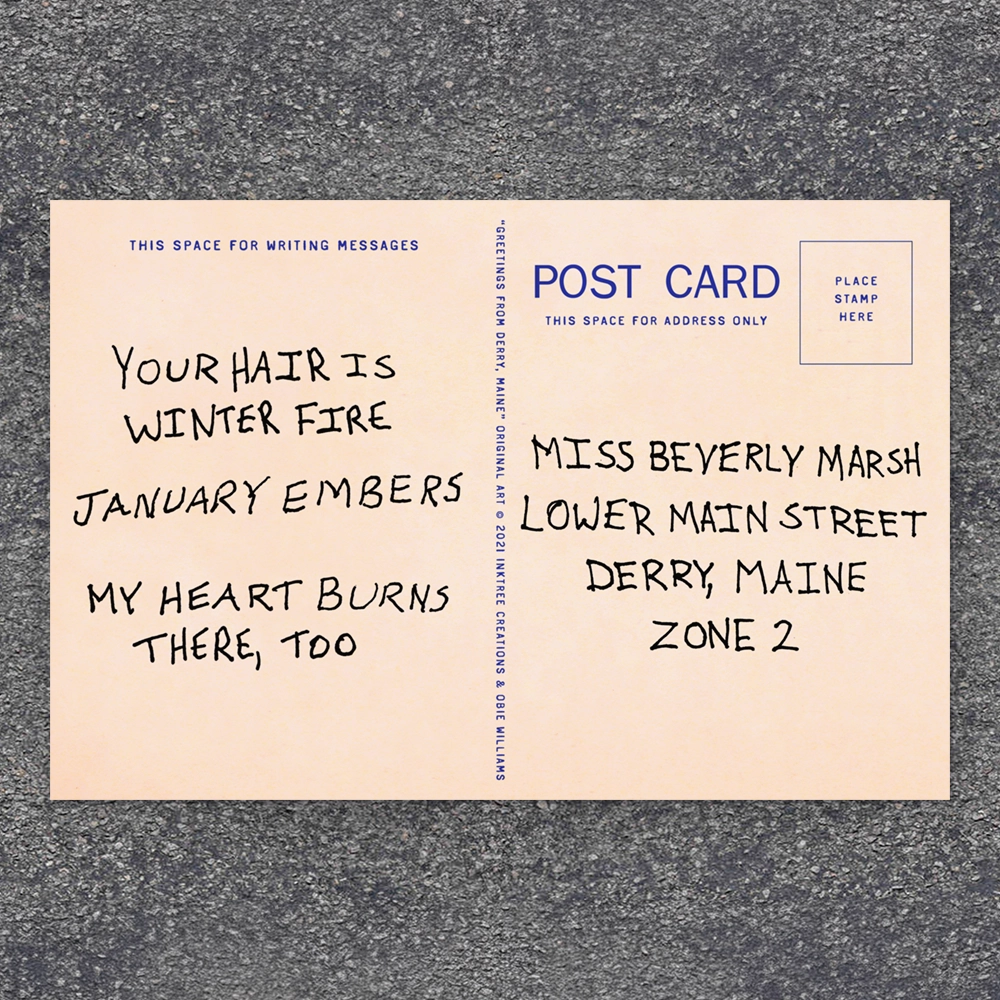 THIS SPACE FOR WRITING MESSAGES
YOUR HAIR IS
WINTER FIRE
JANUARY EMBERS
MY HEART BURNS
THERE, TOO
"GREETINGS FROM DERRY, MAINE" ORIGINAL ART © 2021 INKTREE CREATIONS & OBIE WILLIAMS
POST CARD
THIS SPACE FOR ADDRESS ONLY
PLACE
STAMP
HERE
MISS BEVERLY MARSH
LOWER MAIN STREET
DERRY, MAINE
ZONE 2